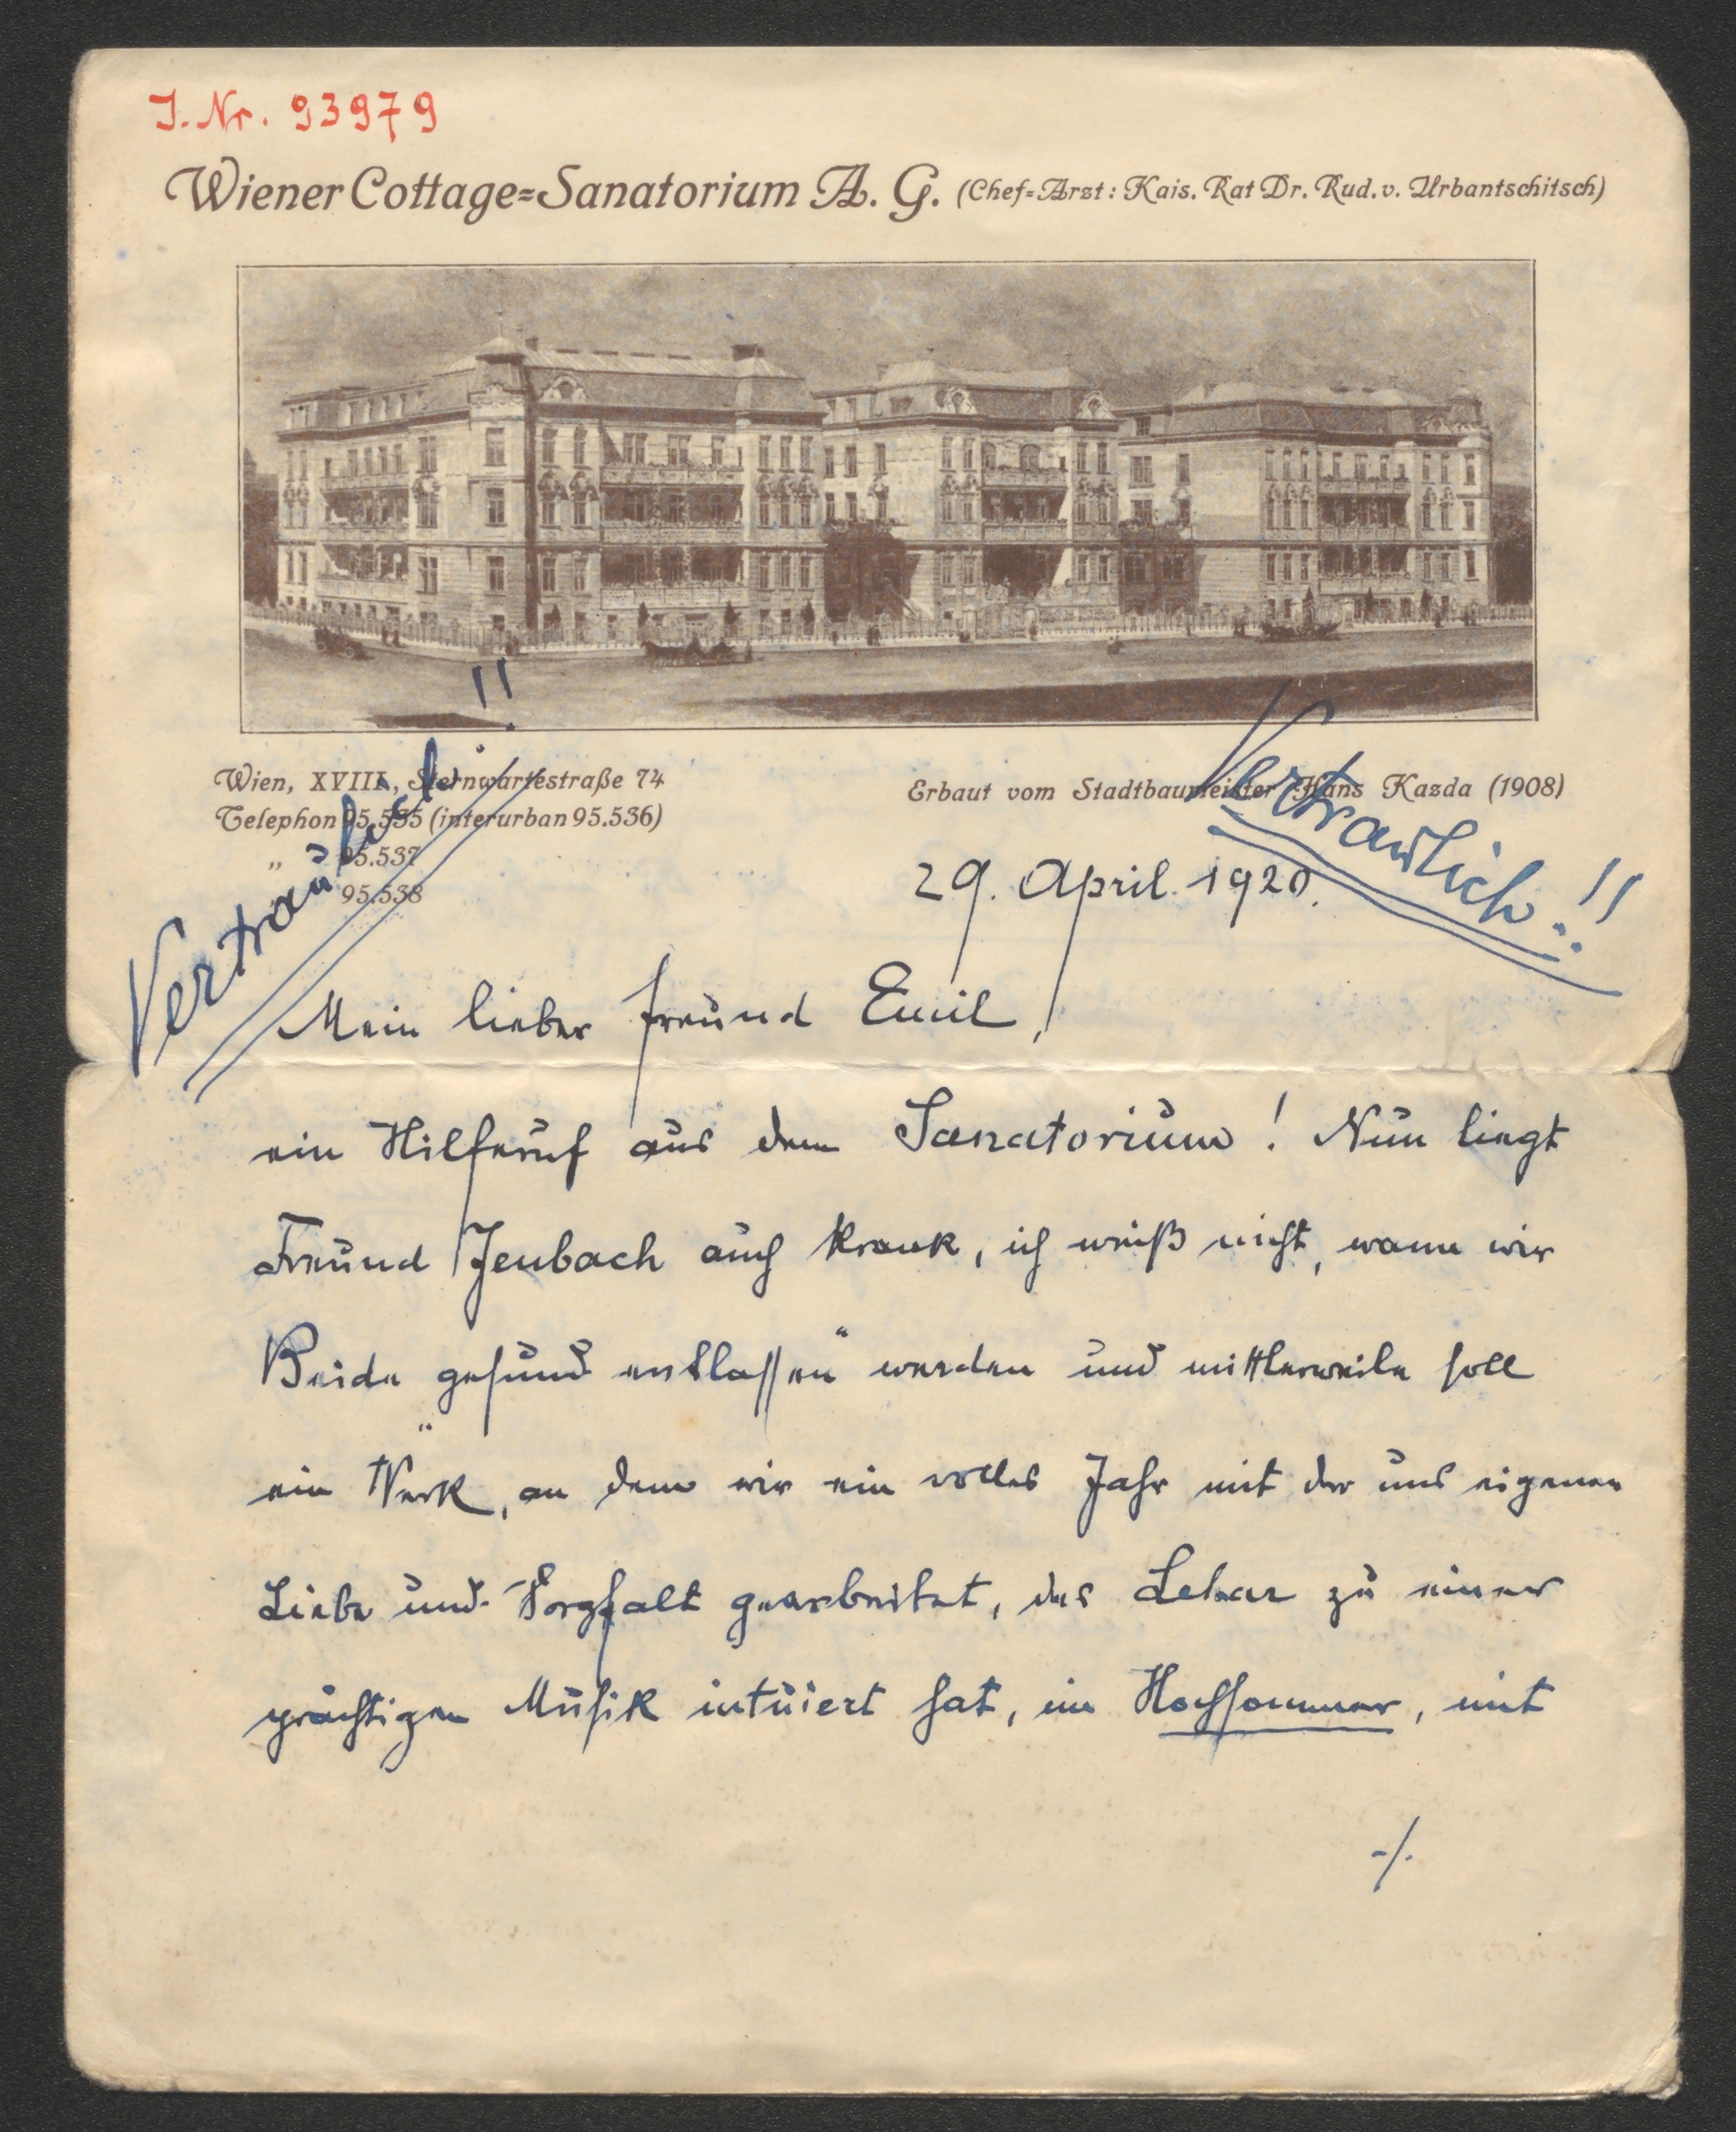 J. Nr. 93979
Wiener Cottage=Sanatorium A. G. (Chef=Arzt: Kais. Rat Dr. Rud. v. Urbantschitsch)
Wien, XVIII, Sternwartestraße 74
Telephon 95.535 (interurban 95.536)
„ 95.537
95.538
Erbaut vom Stadtbaumeister Hans Kazda (1908)
Vertraulich!!
Vertraulich!!
29. April 1920.
Mein lieber Freund Emil,
ein Hilferuf aus dem Sanatorium! Nun liegt
Freund Jenbach auch krank, ich weiß nicht, wann wir
Beide „gesund entlassen“ werden und mittlerweile soll
ein Werk, an dem wir ein volles Jahr mit der uns eigenen
Liebe und Sorgfalt gearbeitet, das Lehar zu einer
prächtigen Musik intuiert hat, im Hochsommer, mit
-/.